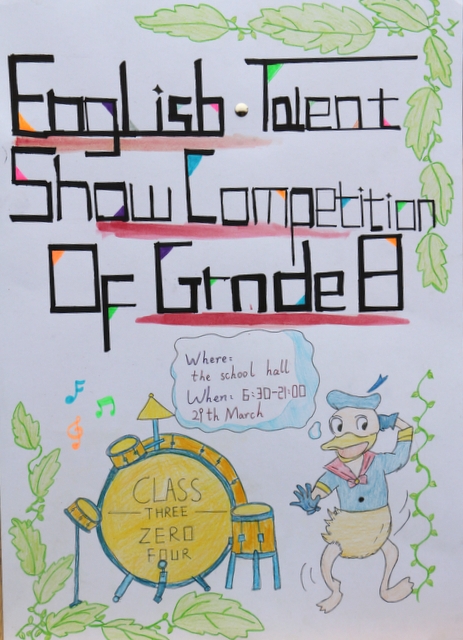 English Talent
Show Competition
Of Grade 8
Where:
the school hall
When: 6:30-21:00
29th March
CLASS
THREE
ZERO
FOUR